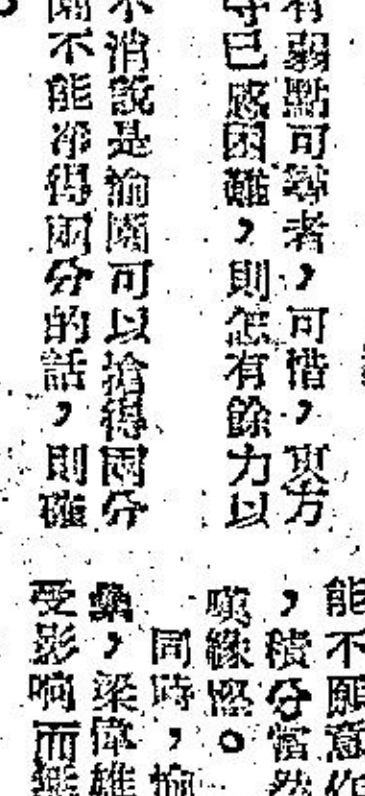 有弱點可尋者，可惜，東方
守已感困難，則怎有餘力以
不消說是愉園可以搶得兩分
園不能準得兩分的話，則確
能不願意作
，積分當然
嘆緣慳。
同時，愉
壘，梁偉雄
受影响而無